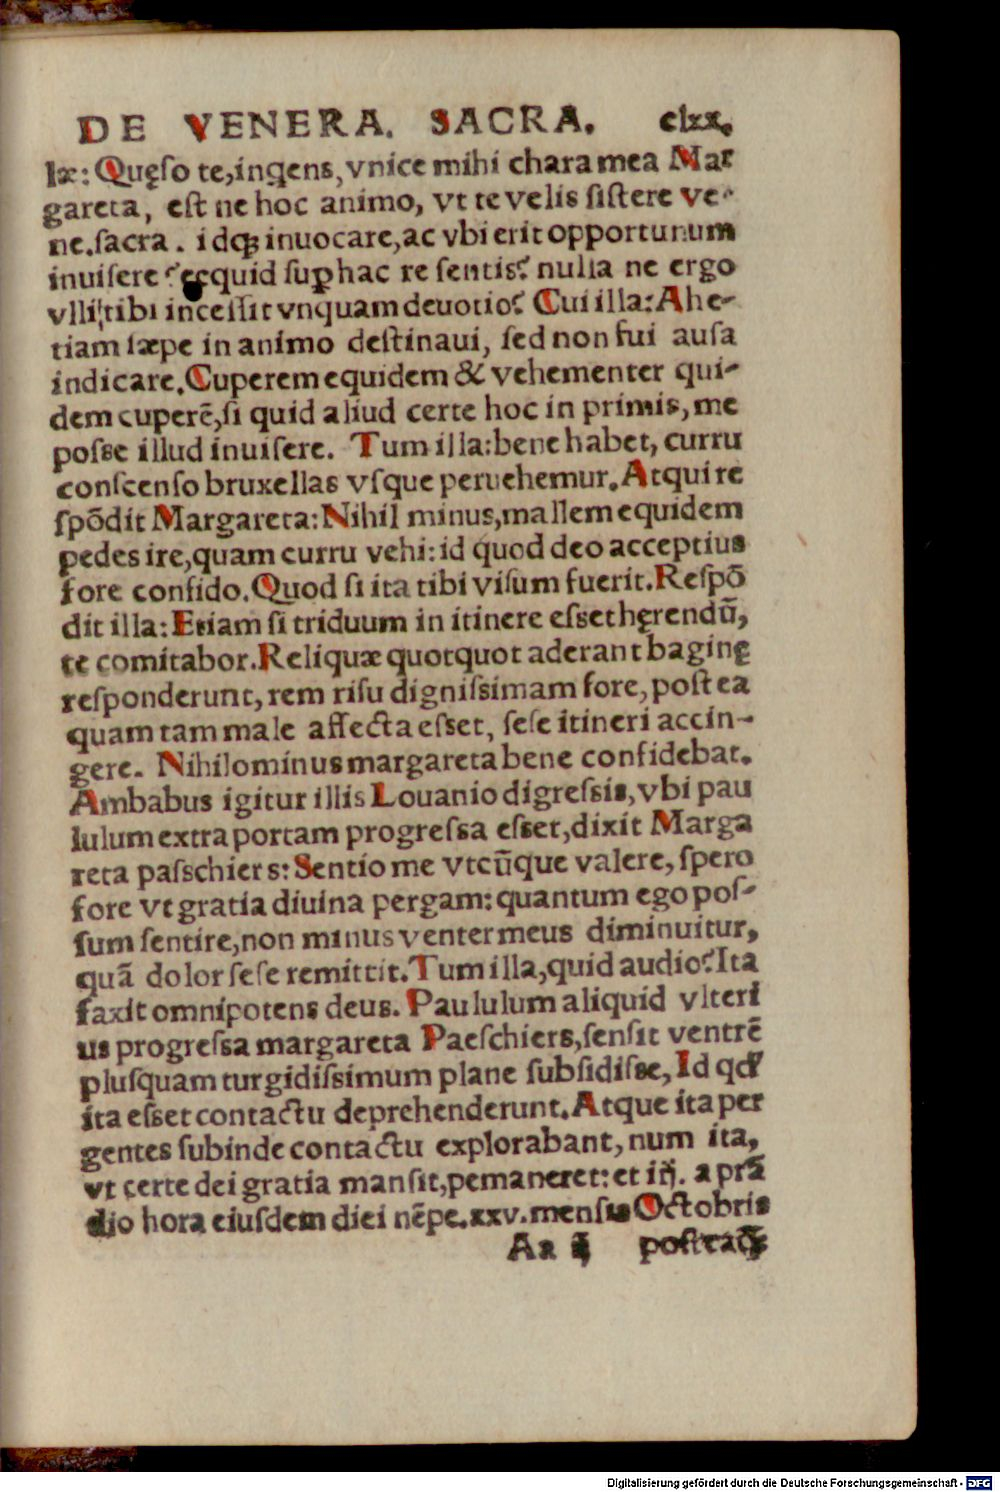 DE VENERA. SACRA. clxx.
læ: Quęſo te, inquens, vnice mihi chara mea Mar
gareta, eſt ne hoc animo, vt te velis ſiſtere ve-
ne. ſacra. idꝙ inuocare, ac vbi erit opportunum
inuiſere? ecquid ſuꝑ hac re ſentis? nulla ne ergo
vlli tibi inceſſit vnquam deuotio? Cui illa: Ah e-
tiam ſæpe in animo deſtinaui, ſed non fui auſa
indicare. Cuperem equidem & vehementer qui-
dem cuperē, ſi quid aliud certe hoc in primis, me
poſse illud inuiſere. Tum illa: bene habet, curru
conſcenſo bruxellas vſque peruehemur. Atqui re
ſpōdit Margareta: Nihil minus, mallem equidem
pedes ire, quam curru vehi: id quod deo acceptius
fore confido. Quod ſi ita tibi viſum fuerit. Reſpō
dit illa: Etiam ſi triduum in itinere eſset hęrendū,
te comitabor. Reliquæ quotquot aderant baginę
reſponderunt, rem riſu digniſsimam fore, poſt ea
quam tam male affecta eſset, ſeſe itineri accin-
gere. Nihilominus margareta bene confidebat.
Ambabus igitur illis Louanio digreſsis, vbi pau
lulum extra portam progreſsa eſset, dixit Marga
reta paſschiers: Sentio me vtcūque valere, ſpero
fore vt gratia diuina pergam: quantum ego poſ-
ſum ſentire, non minus venter meus diminuitur,
quā dolor ſeſe remittit. Tum illa, quid audio? Ita
faxit omnipotens deus. Paululum aliquid vlteri
us progreſsa margareta Paeſchiers, ſenſit ventrē
pluſquam turgidiſsimum plane ſubſidiſse, Id qd'
ita eſset contactu deprehenderunt. Atque ita per
gentes ſubinde contactu explorabant, num ita,
vt certe dei gratia manſit, pemaneret: et iij. a prā
dio hora eiuſdem diei nēpe. xxv. menſis Octobris
Aa poſteaꝙ
Digitalisierung gefördert durch die Deutsche Forschungsgemeinschaft - DFG